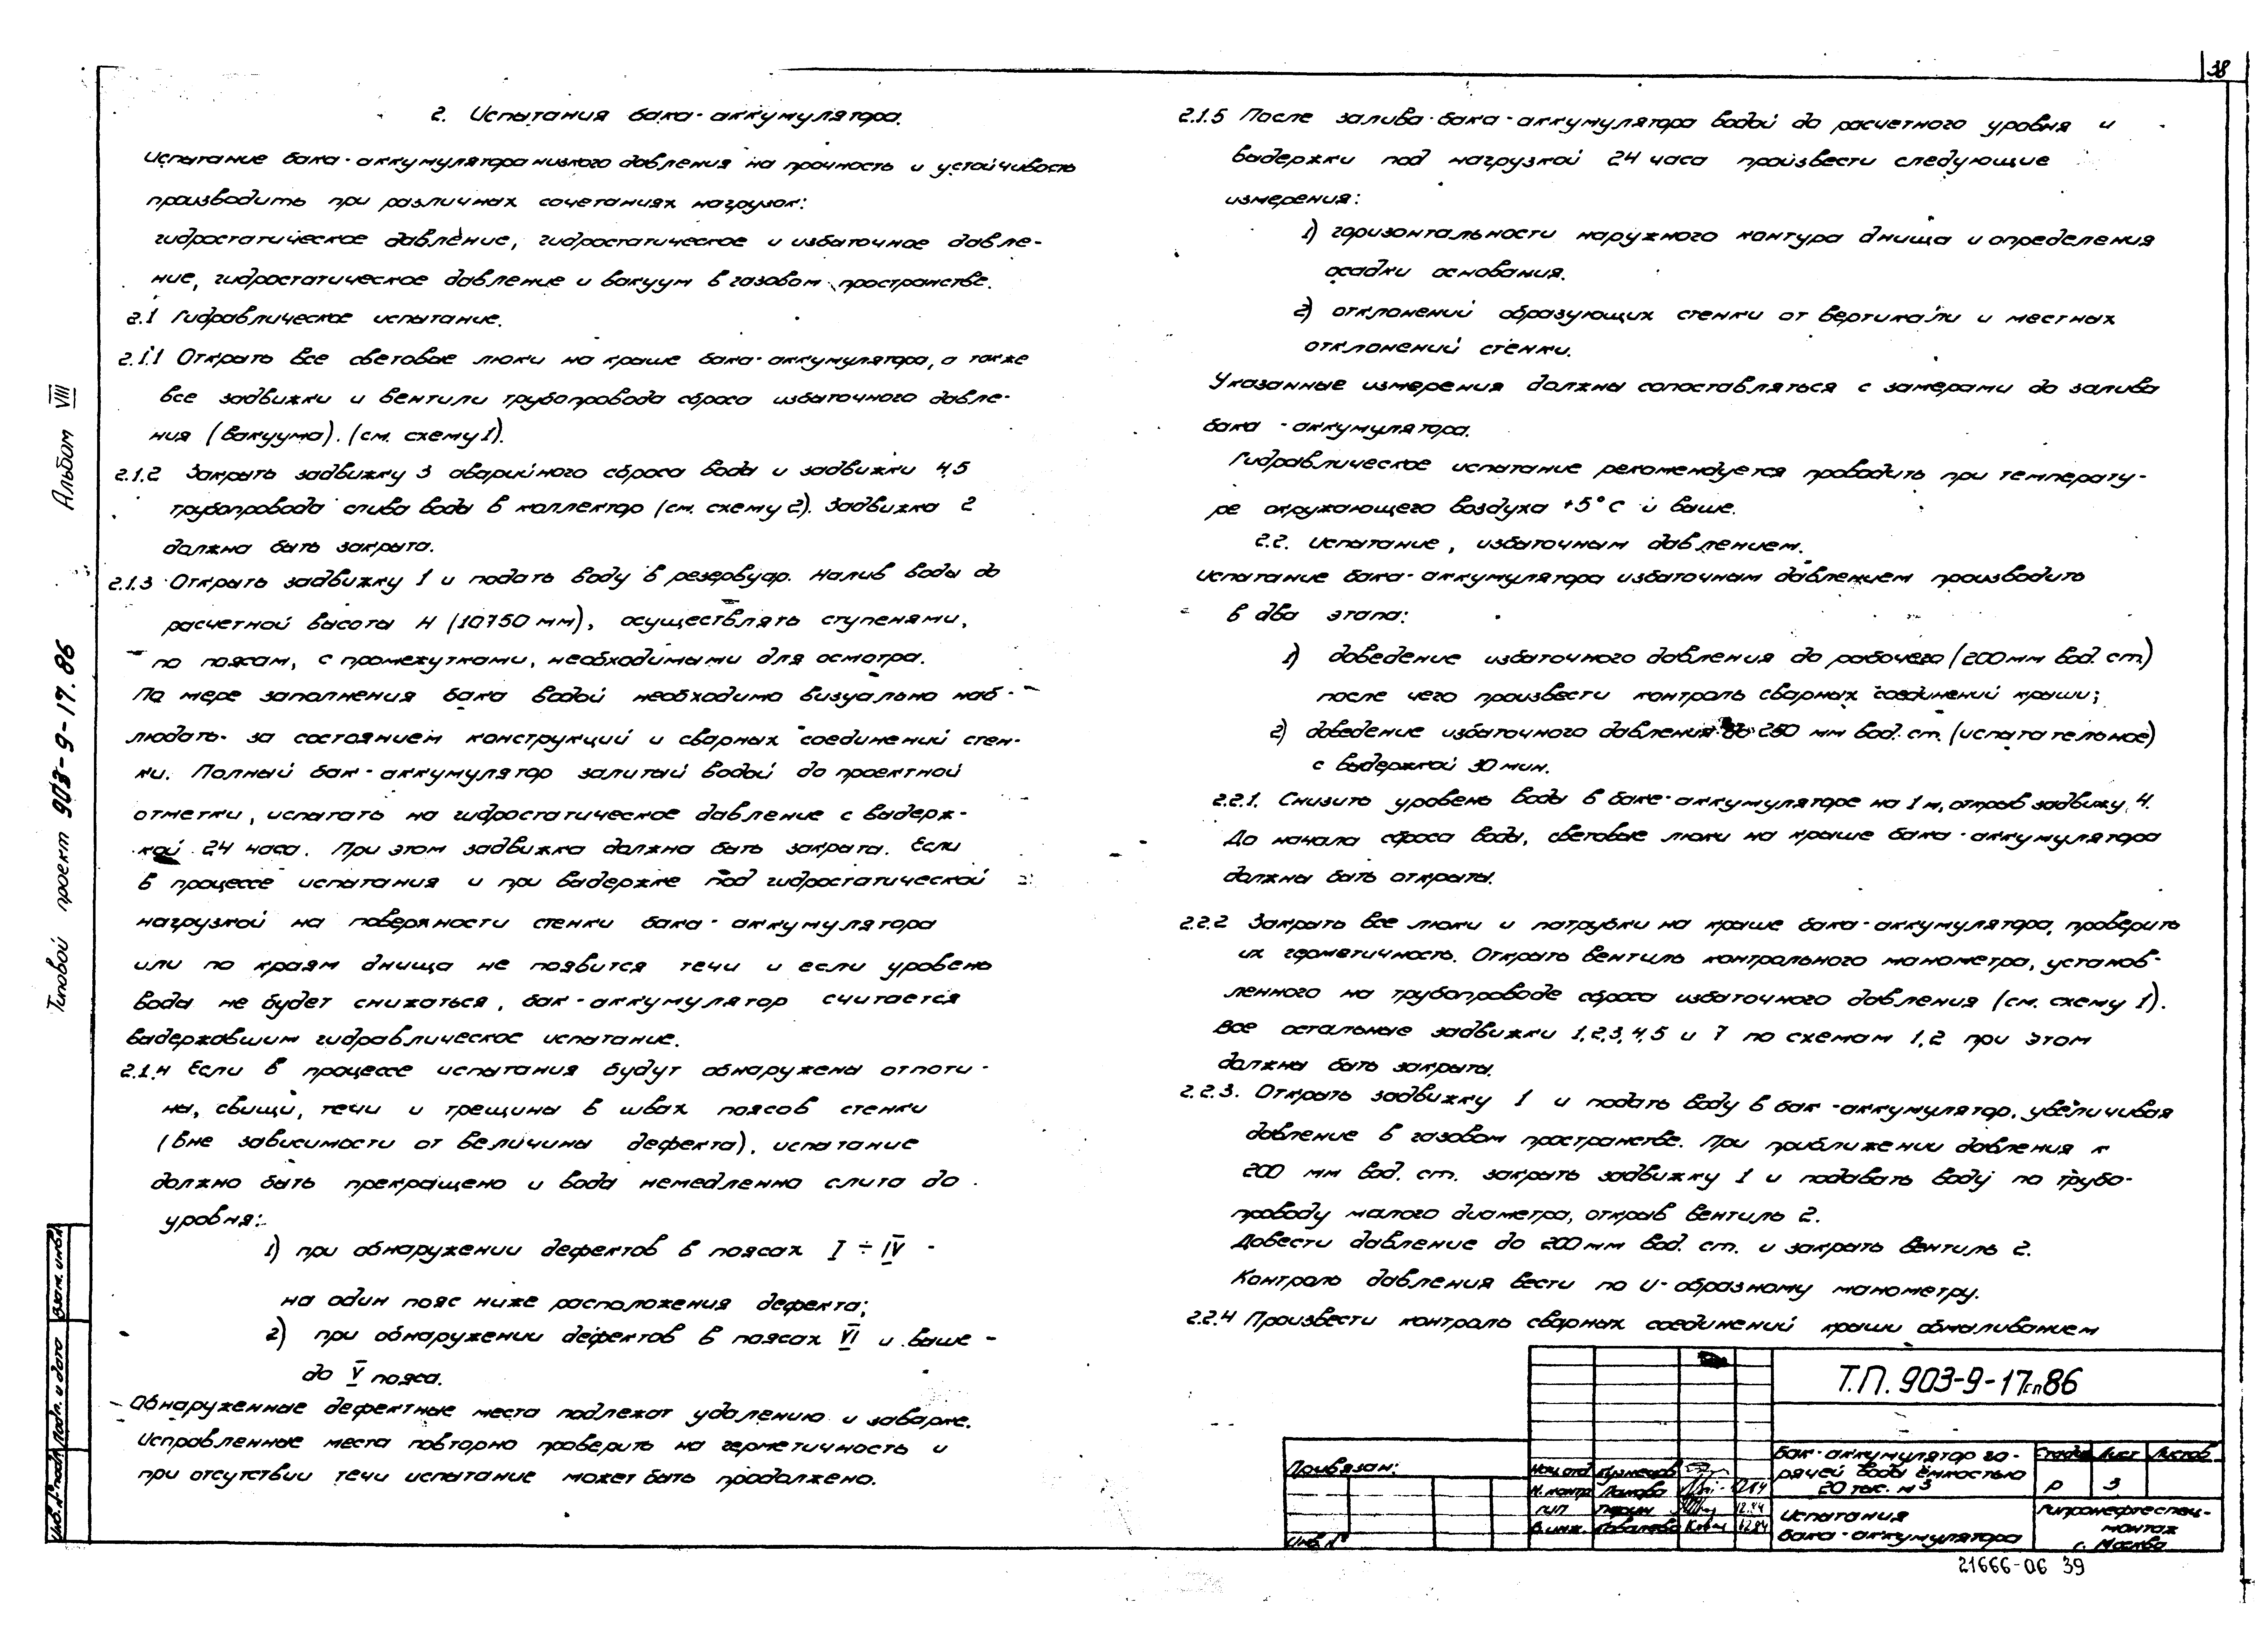 38
2. Испытания бака-аккумулятора.
Испытание бака-аккумулятора низкого давления на прочность и устойчивость
производить при различных сочетаниях нагрузок:
гидростатическое давление, гидростатическое и избыточное давле-
ние, гидростатическое давление и вакуум в газовом пространстве.
2.1 Гидравлическое испытание.
2.1.1 Открыть все световые люки на крыше бака-аккумулятора, а также
все задвижки и вентили трубопровода сброса избыточного давле-
ния (вакуума). (см. схему 1).
2.1.2 Закрыть задвижку 3 аварийного сброса воды и задвижки 4,5
трубопровода слива воды в коллектор (см. схему 2). Задвижка 2
должна быть закрыта.
2.1.3 Открыть задвижку 1 и подать воду в резервуар. Налив воды до
расчетной высоты Н (10750 мм), осуществлять ступенями,
по поясам, с промежутками, необходимыми для осмотра.
По мере заполнения бака водой необходимо визуально наб-
людать за состоянием конструкций и сварных соединений стен-
ки. Полный бак-аккумулятор залитый водой до проектной
отметки, испытать на гидростатическое давление с выдерж-
кой 24 часа. При этом задвижка должна быть закрыта. Если
в процессе испытания и при выдержке под гидростатической
нагрузкой на поверхности стенки бака-аккумулятора
или по краям днища не появится течи и если уровень
воды не будет снижаться, бак-аккумулятор считается
выдержавшим гидравлическое испытание.
2.1.4 Если в процессе испытания будут обнаружены отпоти-
ны, свищи, течи и трещины в швах поясов стенки
(вне зависимости от величины дефекта), испытание
должно быть прекращено и вода немедленно слита до
уровня:
1) при обнаружении дефектов в поясах I ÷ IV -
на один пояс ниже расположения дефекта;
2) при обнаружении дефектов в поясах VI и выше -
до V пояса.
Обнаруженные дефектные места подлежат удалению и заварке.
Исправленные места повторно проверить на герметичность и
при отсутствии течи испытание может быть продолжено.
2.1.5 После залива бака-аккумулятора водой до расчетного уровня и
выдержки под нагрузкой 24 часа произвести следующие
измерения:
1) горизонтальности наружного контура днища и определения
осадки основания.
2) отклонений образующих стенки от вертикали и местных
отклонений стенки.
Указанные измерения должны сопоставляться с замерами до залива
бака-аккумулятора.
Гидравлическое испытание рекомендуется проводить при температу-
ре окружающего воздуха +5°С и выше.
2.2. Испытание, избыточным давлением.
Испытание бака-аккумулятора избыточным давлением производить
в два этапа:
1) доведение избыточного давления до рабочего (200 мм вод. ст.)
после чего произвести контроль сварных соединений крыши;
2) доведение избыточного давления до 250 мм вод. ст. (испытательное)
с выдержкой 30 мин.
2.2.1. Снизить уровень воды в баке-аккумуляторе на 1 м, открыв задвижу 4.
До начала сброса воды, световые люки на крыше бака-аккумулятора
должны быть открыты.
2.2.2 Закрыть все люки и патрубки на крыше бака-аккумулятора, проверить
их герметичность. Открыть вентиль контрольного манометра, установ-
ленного на трубопроводе сброса избыточного давления (см. схему 1).
Все остальные задвижки 1,2,3,4,5 и 7 по схемам 1,2 при этом
должны быть закрыты.
2.2.3. Открыть задвижку 1 и подать воду в бак-аккумулятор, увеличивая
давление в газовом пространстве. При приближении давления к
200 мм вод. ст. закрыть задвижку 1 и подавать воду по трубо-
проводу малого диаметра, открыв вентиль 2.
Довести давление до 200 мм вод. ст. и закрыть вентиль 2.
Контроль давления вести по U-образному манометру.
2.2.4 Произвести контроль сварных соединений крыши обмыливанием
Типовой проект 903-9-17.86 Альбом VIII
Взам. инв.№
Подп. и дата
Инв. № подл.
Т.П. 903-9-17сп86
Привязан:
Инв. №
Нач. отд. Кузнецов
Н. контр. Панова 12.84
ГИП 12.84
В. инж. Ковалева 12.84
Бак-аккумулятор го-
рячей воды ёмкостью
20 тыс. м3
Стадия Лист Листов
Р 3
Испытания
бака-аккумулятора
Гипронефтеспец-
монтаж
г. Москва
21666-06 39